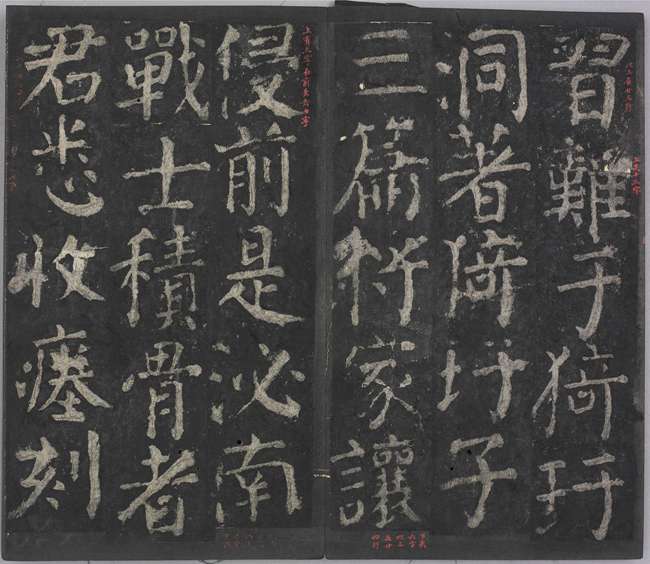 習難于猗玗
洞著猗玗子
三篇将家讓
侵前是泌南
戰士積骨者
君悉收瘞刻